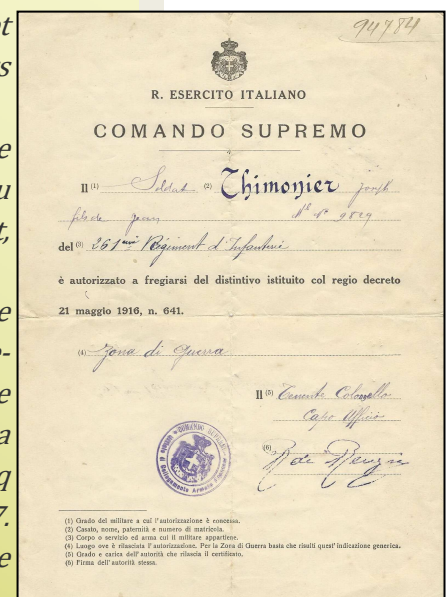 et
s
e
u
t,
e
-
e
a
q
7.
e
94784
R. ESERCITO ITALIANO
COMANDO SUPREMO
Il (1) Soldat (2) Thimonier Joseph
fils de Jean Nl No 9829
del (3) 261eme Regiment d'Infanterie
è autorizzato a fregiarsi del distintivo istituito col regio decreto
21 maggio 1916, n. 641.
(4) Zona di Guerra
Il (5) Tenente Colonnello
Capo Ufficio
(6)
COMANDO SUPREMO
Collegamento Armata Francese
(1) Grado del militare a cui l'autorizzazione è concessa.
(2) Casato, nome, paternità e numero di matricola.
(3) Corpo o servizio ed arma cui il militare appartiene.
(4) Luogo ove è rilasciata l'autorizzazione. Per la Zona di Guerra basta che risulti quest'indicazione generica.
(5) Grado e carica dell'autorità che rilascia il certificato.
(6) Firma dell'autorità stessa.